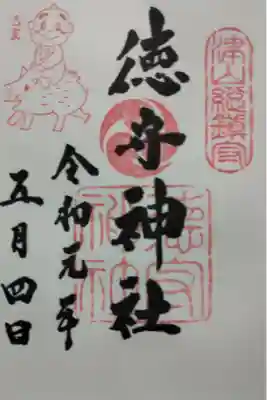 津山総鎮守
徳守神社
令和元年
五月四日
徳守
神社